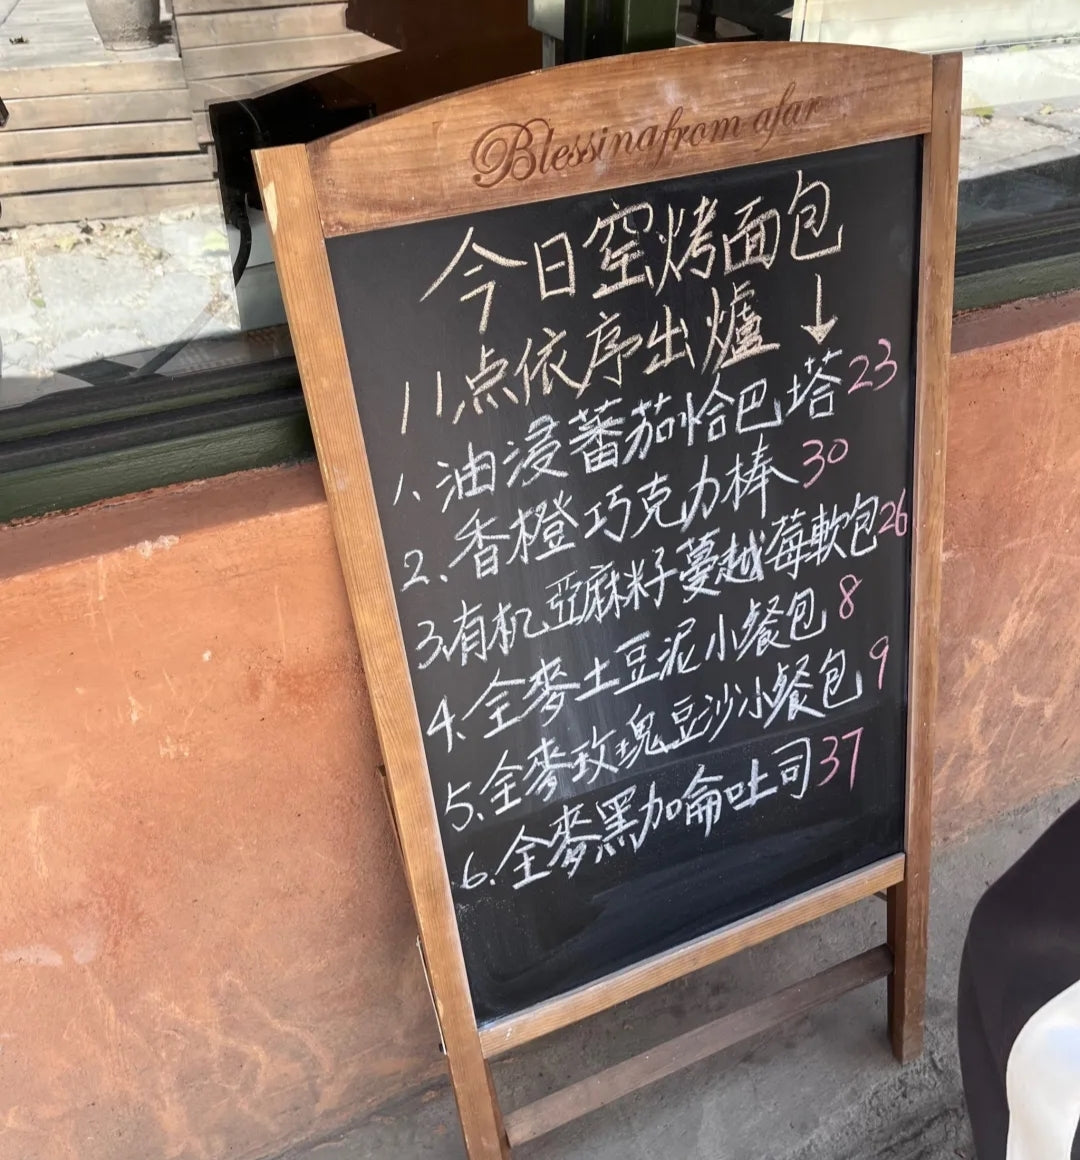 Blessing from afar
今日窑烤面包
11点依序出爐 ↓
1、油浸蕃茄恰巴塔 23
2、香橙巧克力棒 30
3、有机亞麻籽蔓越莓軟包 26
4、全麥土豆泥小餐包 8
5、全麥玫瑰豆沙小餐包 9
6、全麥黑加侖吐司 37